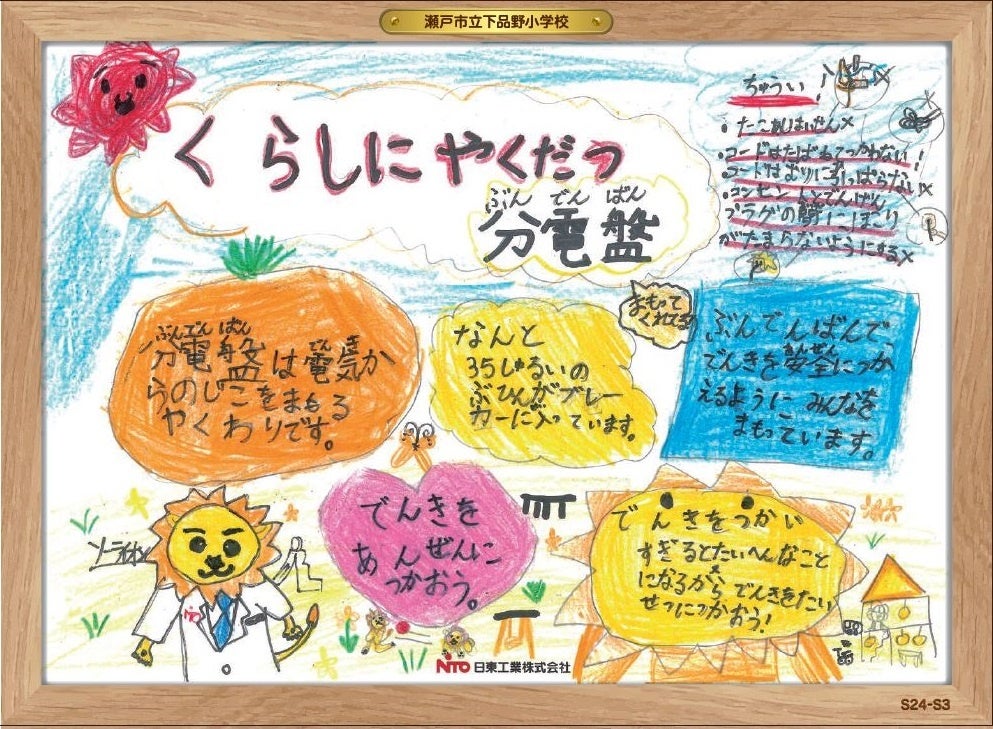 瀬戸市立下品野小学校
くらしにやくだつ
ぶんでんばん
分電盤
ちゅうい!
・たこあしはいせん×
・コードはたばねてつかわない!
・コードはむりに引っぱらない×
・コンセントとでんげん
プラグの間にほこり
がたまらないようにする×
ぶんでんばん でん き
分電盤は電気か
らのじこをまもる
やくわりです。
なんと
35しゅるいの
ぶひんがブレー
カーに入っています。
まもって
くれてる
ぶんでんばんで、
あんぜん
でんきを安全につか
えるように みんなを
まもっています。
でんきを
あんぜんに
つかおう。
でんきをつかい
すぎるとたいへんなこと
になるから でんきをたい
せつにつかおう!
NITO 日東工業株式会社
S24-S3